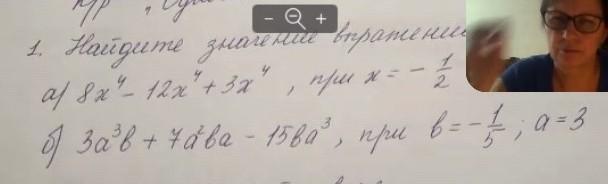 1. Найдите значение
а) 8x⁴ - 12x⁴ + 3x⁴, при x = -1/2
б) 3a³b + 7a²ba - 15ba³, при b = -1/5; a = 3